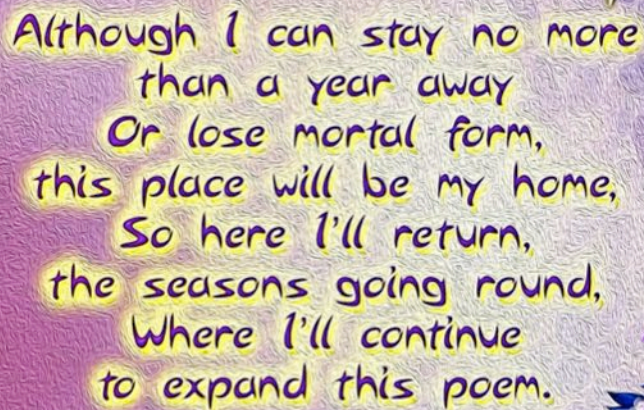 Although I can stay no more
than a year away
Or lose mortal form,
this place will be my home,
So here I'll return,
the seasons going round,
Where I'll continue
to expand this poem.